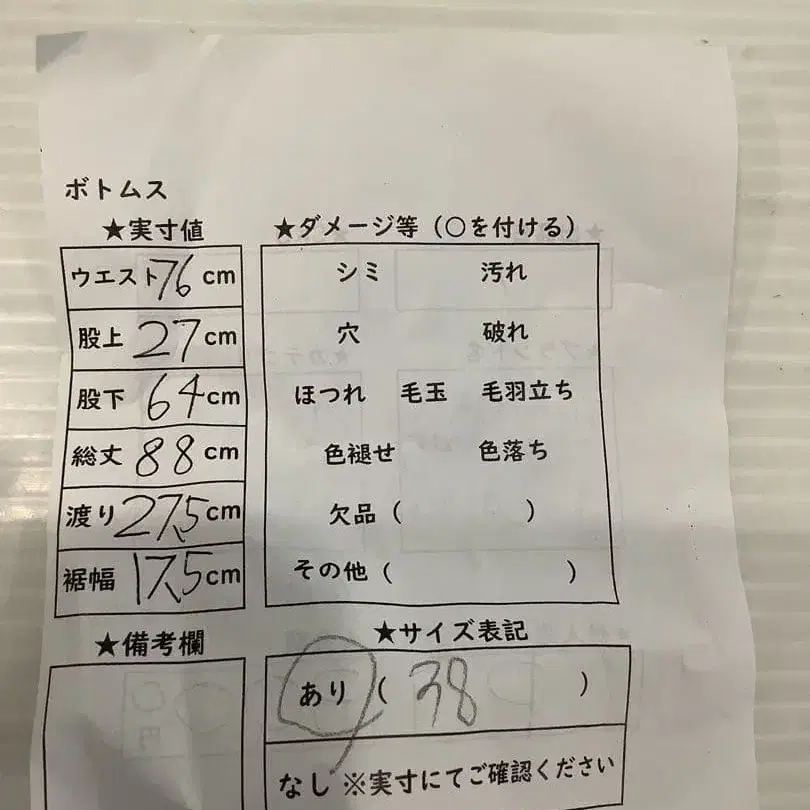 ボトムス
★実寸値
ウエスト 76 cm
股上 27 cm
股下 64 cm
総丈 88 cm
渡り 27.5 cm
裾幅 17.5 cm
★ダメージ等(○を付ける)
シミ 汚れ
穴 破れ
ほつれ 毛玉 毛羽立ち
色褪せ 色落ち
欠品( )
その他( )
★備考欄
★サイズ表記
あり( 38 )
なし ※実寸にてご確認ください